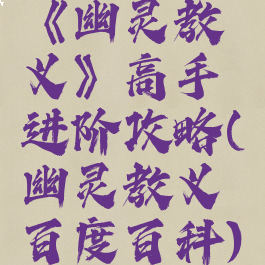 《幽灵教
义》高手
进阶攻略(
幽灵教义
百度百科)